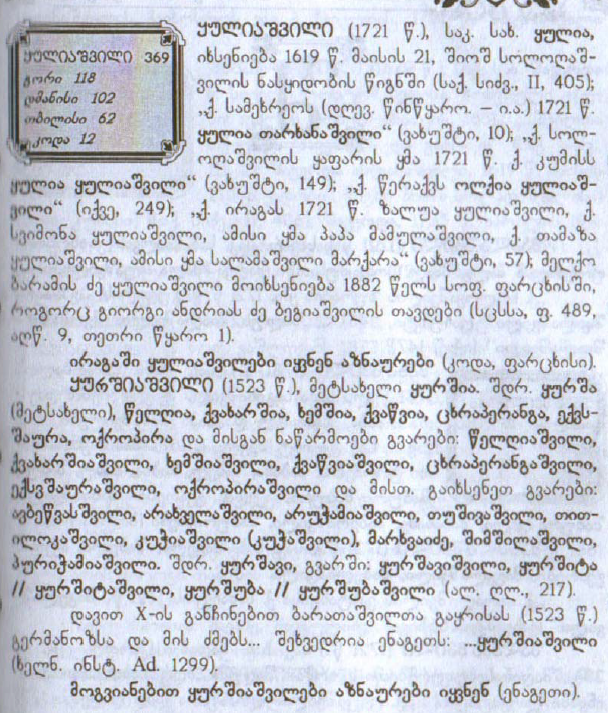 ყულიაშვილი 369
გორი 118
დმანისი 102
თბილისი 62
კოდა 12
ყულიაშვილი (1721 წ.), საკ. სახ. ყულია,
იხსენიება 1619 წ. მაისის 21, შიოშ სოლოღაშ-
ვილის ნასყიდობის წიგნში (საქ. სიძვ., II, 405);
„ქ. სამეხრეოს (დღევ. წინწყარო. – ი.ა.) 1721 წ.
ყულია თარხანაშვილი“ (ვახუშტი, 10); „ქ. სოლ-
ოღაშვილის ყაფარის ყმა 1721 წ. ქ. კუმისს
ყულია ყულიაშვილი“ (ვახუშტი, 149); „ქ. წერაქვს ოლქია ყულიაშ-
ვილი“ (იქვე, 249); „ქ. ირაგას 1721 წ. ზალუა ყულიაშვილი, ქ.
სვიმონა ყულიაშვილი, ამისი ყმა პაპა მამულაშვილი, ქ. თამაზა
ყულიაშვილი, ამისი ყმა სალამაშვილი მარქარა“ (ვახუშტი, 57); მელქო
ბარამის ძე ყულიაშვილი მოიხსენიება 1882 წელს სოფ. ფარცხისში,
როგორც გიორგი ანდრიას ძე ბეგიაშვილის თავდები (სცსსა, ფ. 489,
აღწ. 9, თეთრი წყარო 1).
ირაგაში ყულიაშვილები იყვნენ აზნაურები (კოდა, ფარცხისი).
ყურშიაშვილი (1523 წ.), მეტსახელი ყურშია. შდრ. ყურშა
(მეტსახელი), წელღია, ქვახარშია, ხემშია, ქვაწვია, ცხრაპერანგა, ექვს-
შაურა, ოქროპირა და მისგან ნაწარმოები გვარები: წელღიაშვილი,
ქვახარშიაშვილი, ხემშიაშვილი, ქვაწვიაშვილი, ცხრაპერანგაშვილი,
ექსვშაურაშვილი, ოქროპირაშვილი და მისთ. გაიხსენეთ გვარები:
ავბეწვასშვილი, არახველაშვილი, არუჭამიაშვილი, თუშივაშვილი, თით-
ილოკაშვილი, კუჭიაშვილი (კუჭაშვილი), მარხვაიძე, შიმშილაშვილი,
პურიჭამიაშვილი. შდრ. ყურშავი, გვარში: ყურშავიშვილი, ყურშიტა
// ყურშიტაშვილი, ყურშუბა // ყურშუბაშვილი (ალ. ღლ., 217).
დავით X-ის განჩინებით ბარათაშვილთა გაყრისას (1523 წ.)
გერმანოზსა და მის ძმებს... შეხვედრია ენაგეთს: ...ყურშიაშვილი
(ხელნ. ინსტ. Ad. 1299).
მოგვიანებით ყურშიაშვილები აზნაურები იყვნენ (ენაგეთი).